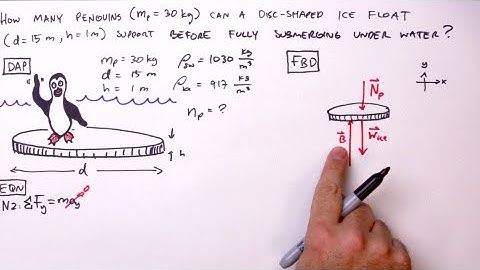 HOW MANY PENGUINS (mp = 30 kg) CAN A DISC-SHAPED ICE FLOAT
(d = 15 m, h = 1 m) SUPPORT BEFORE FULLY SUBMERGING UNDER WATER?
DAP
mp = 30 kg
d = 15 m
h = 1 m
ρsw = 1030 kg/m³
ρice = 917 kg/m³
np = ?
h
d
EQN
N2: ΣFy = may 0
FBD
y
x
Np
B
Wice